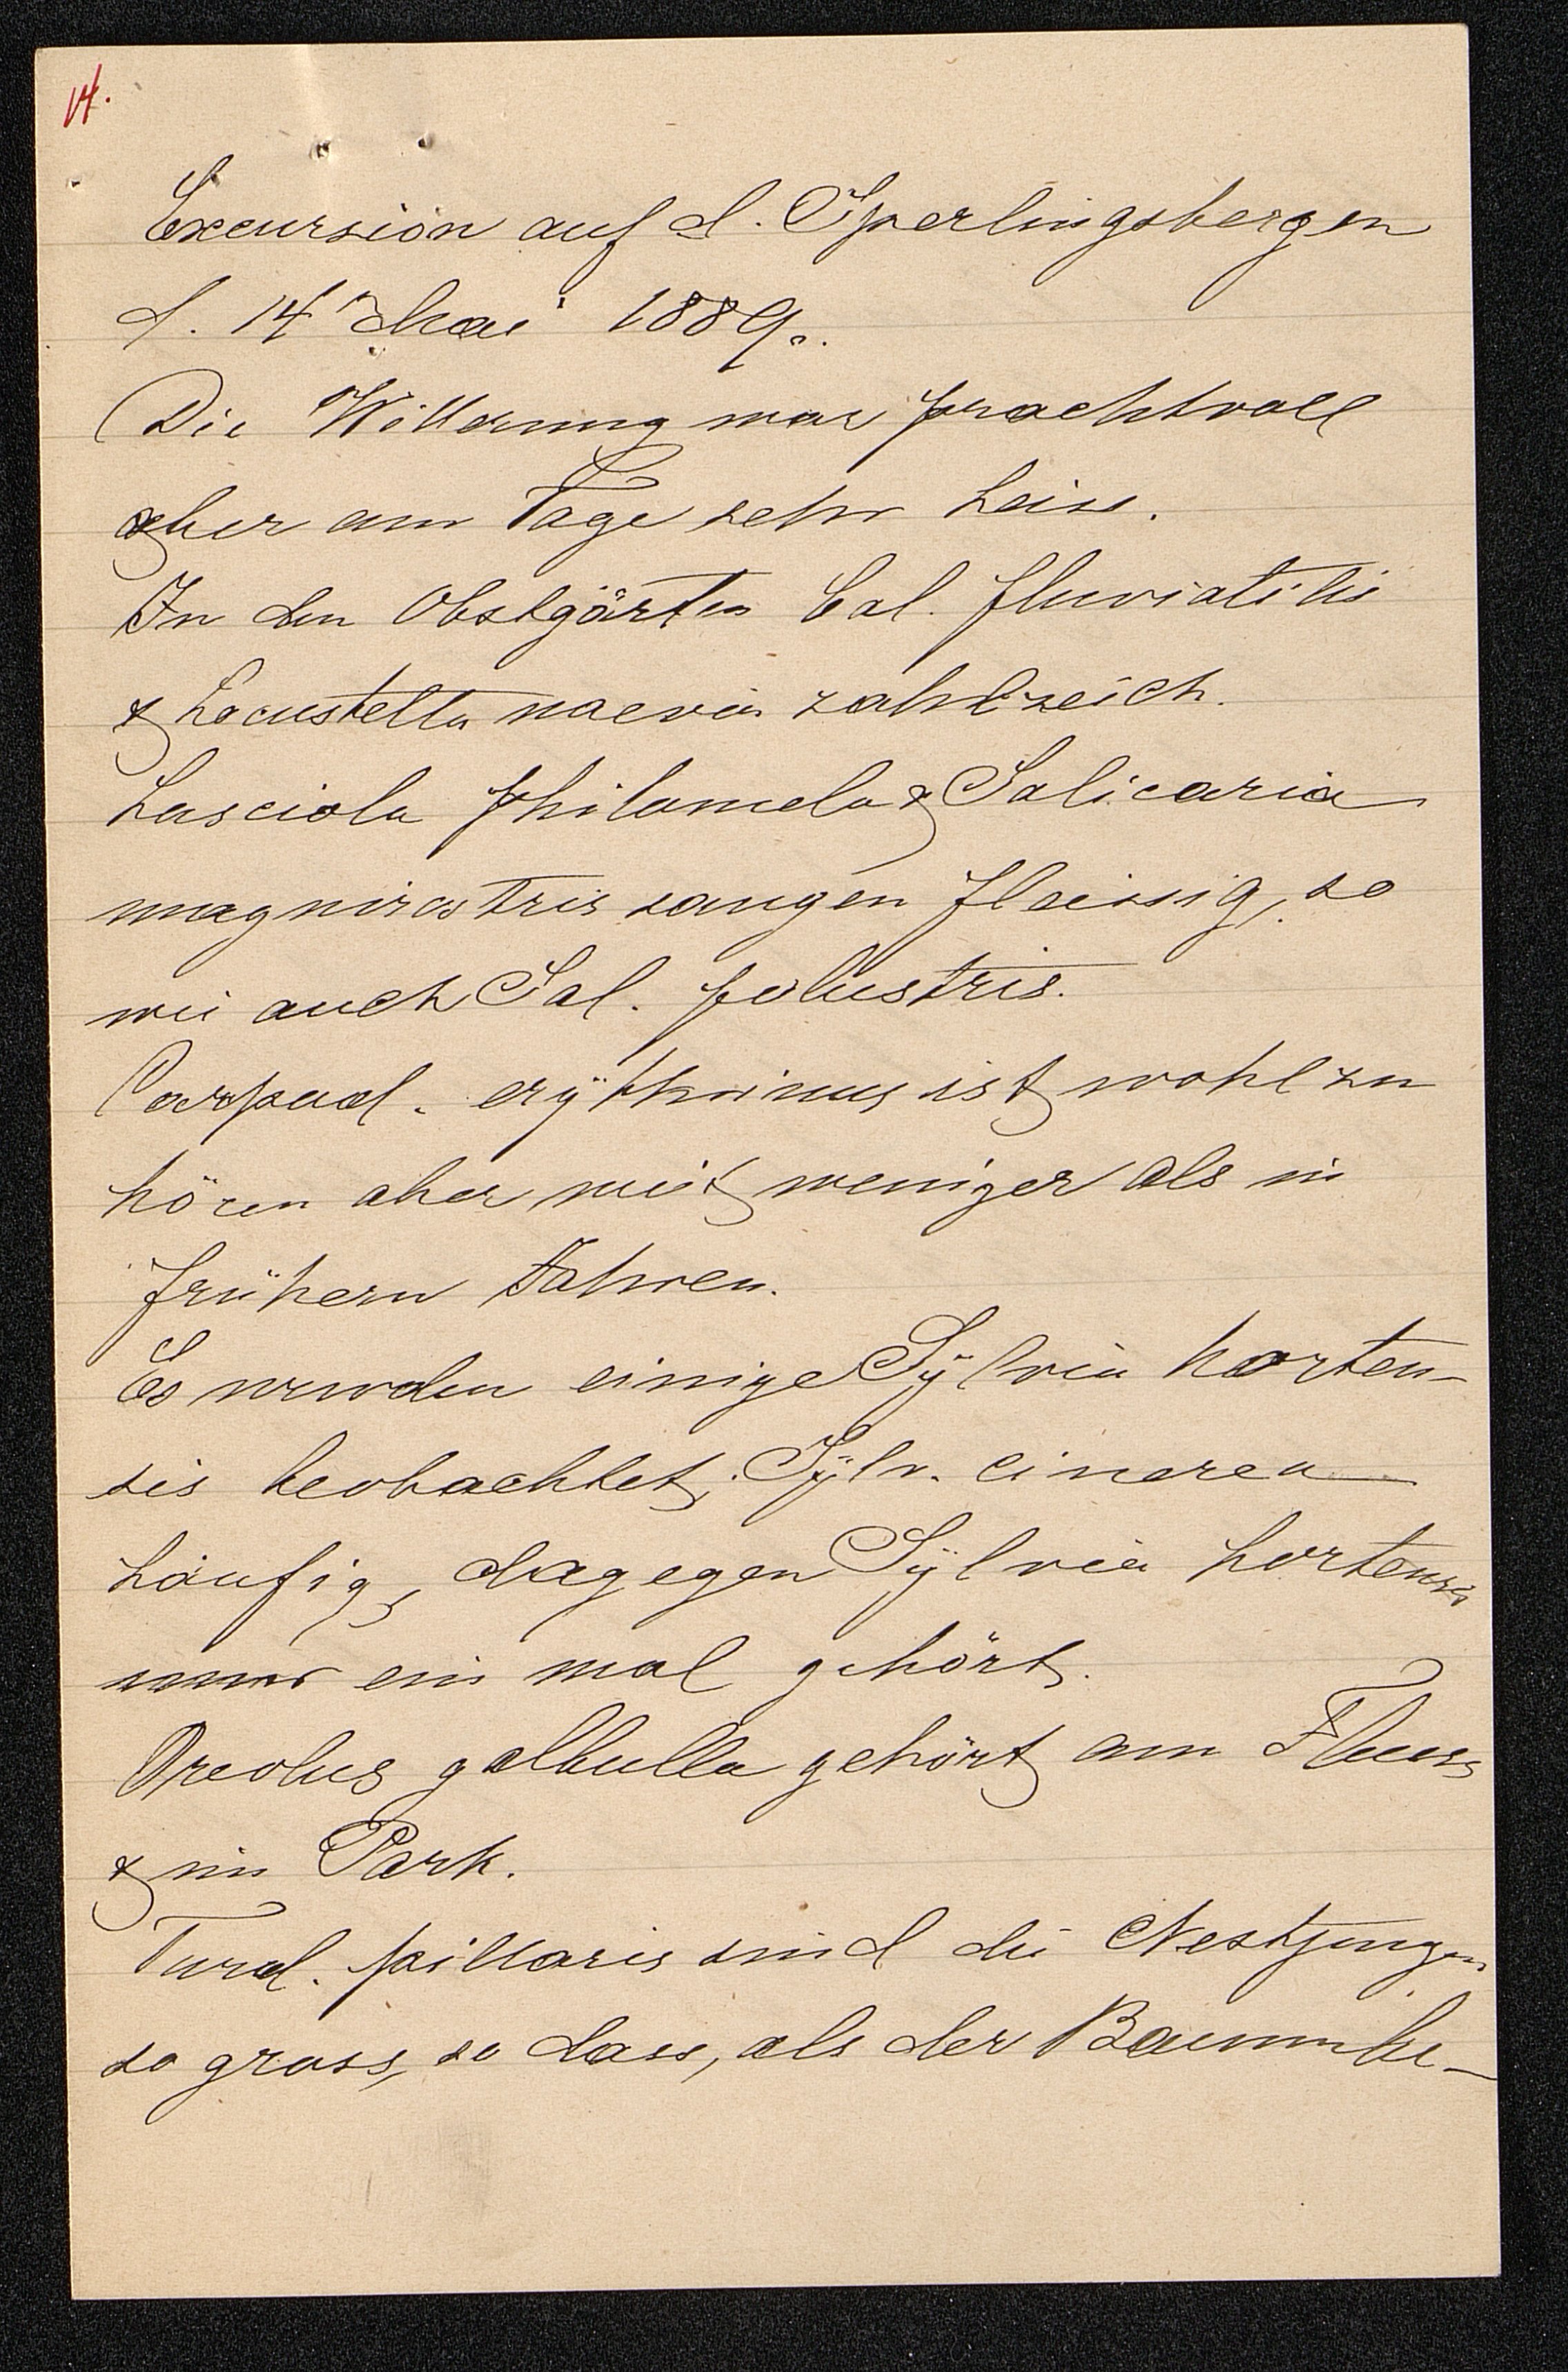 14.
Excursion auf d. Sperlingsbergen
d. 14 Mai 1889.
Die Witterung war prachtvoll
aber am Tage sehr heiss.
In den Obstgärten Cal. fluviatilis
& Locustella naevia zahlreich.
Lusciola philomela & Salicaria
magnirostris sangen fleissig, so
wie auch Sal. palustris.
Carpod. erythrinus ist wohl zu
hören aber weit weniger als in
frühern Jahren.
Es wurden einige Sylvia horten-
sis beobachtet, Sylv. cinerea
häufig, dagegen Sylvia hortensis
nur ein mal gehört.
Oreolus galbulla gehört am Fluss
& im Park.
Turd. pillaris sind die Nestjungen
so gross, so dass, als der Baum be-